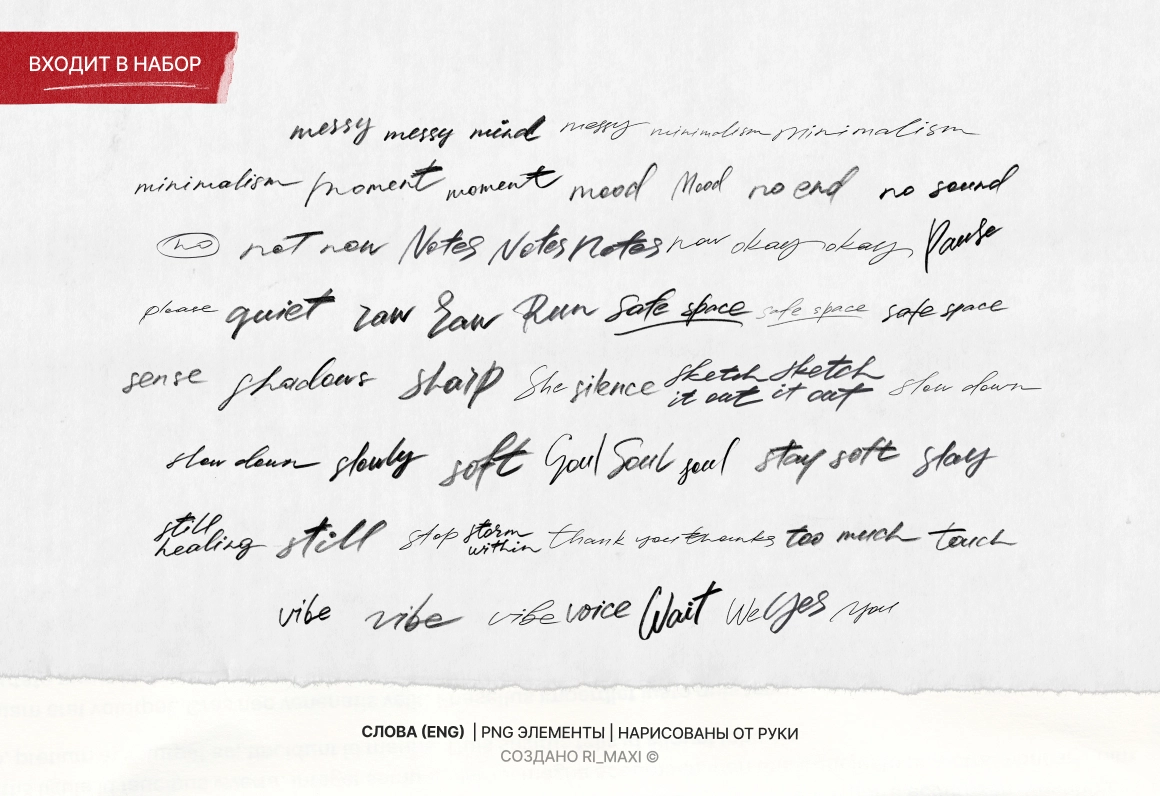 ВХОДИТ В НАБОР
messy messy mind messy minimalism minimalism
minimalism moment moment mood Mood no end no sound
no not now Notes Notes Notes now okay okay Pause
please quiet raw Raw Run Safe space safe space safe space
sense shadows sharp She silence sketch it out sketch it out slow down
slow down slowly soft Soul Soul soul stay soft stay
still healing still stop storm within thank you thanks too much touch
vibe vibe vibe voice Wait We Yes You
СЛОВА (ENG) | PNG ЭЛЕМЕНТЫ | НАРИСОВАНЫ ОТ РУКИ
СОЗДАНО RI_MAXI ©